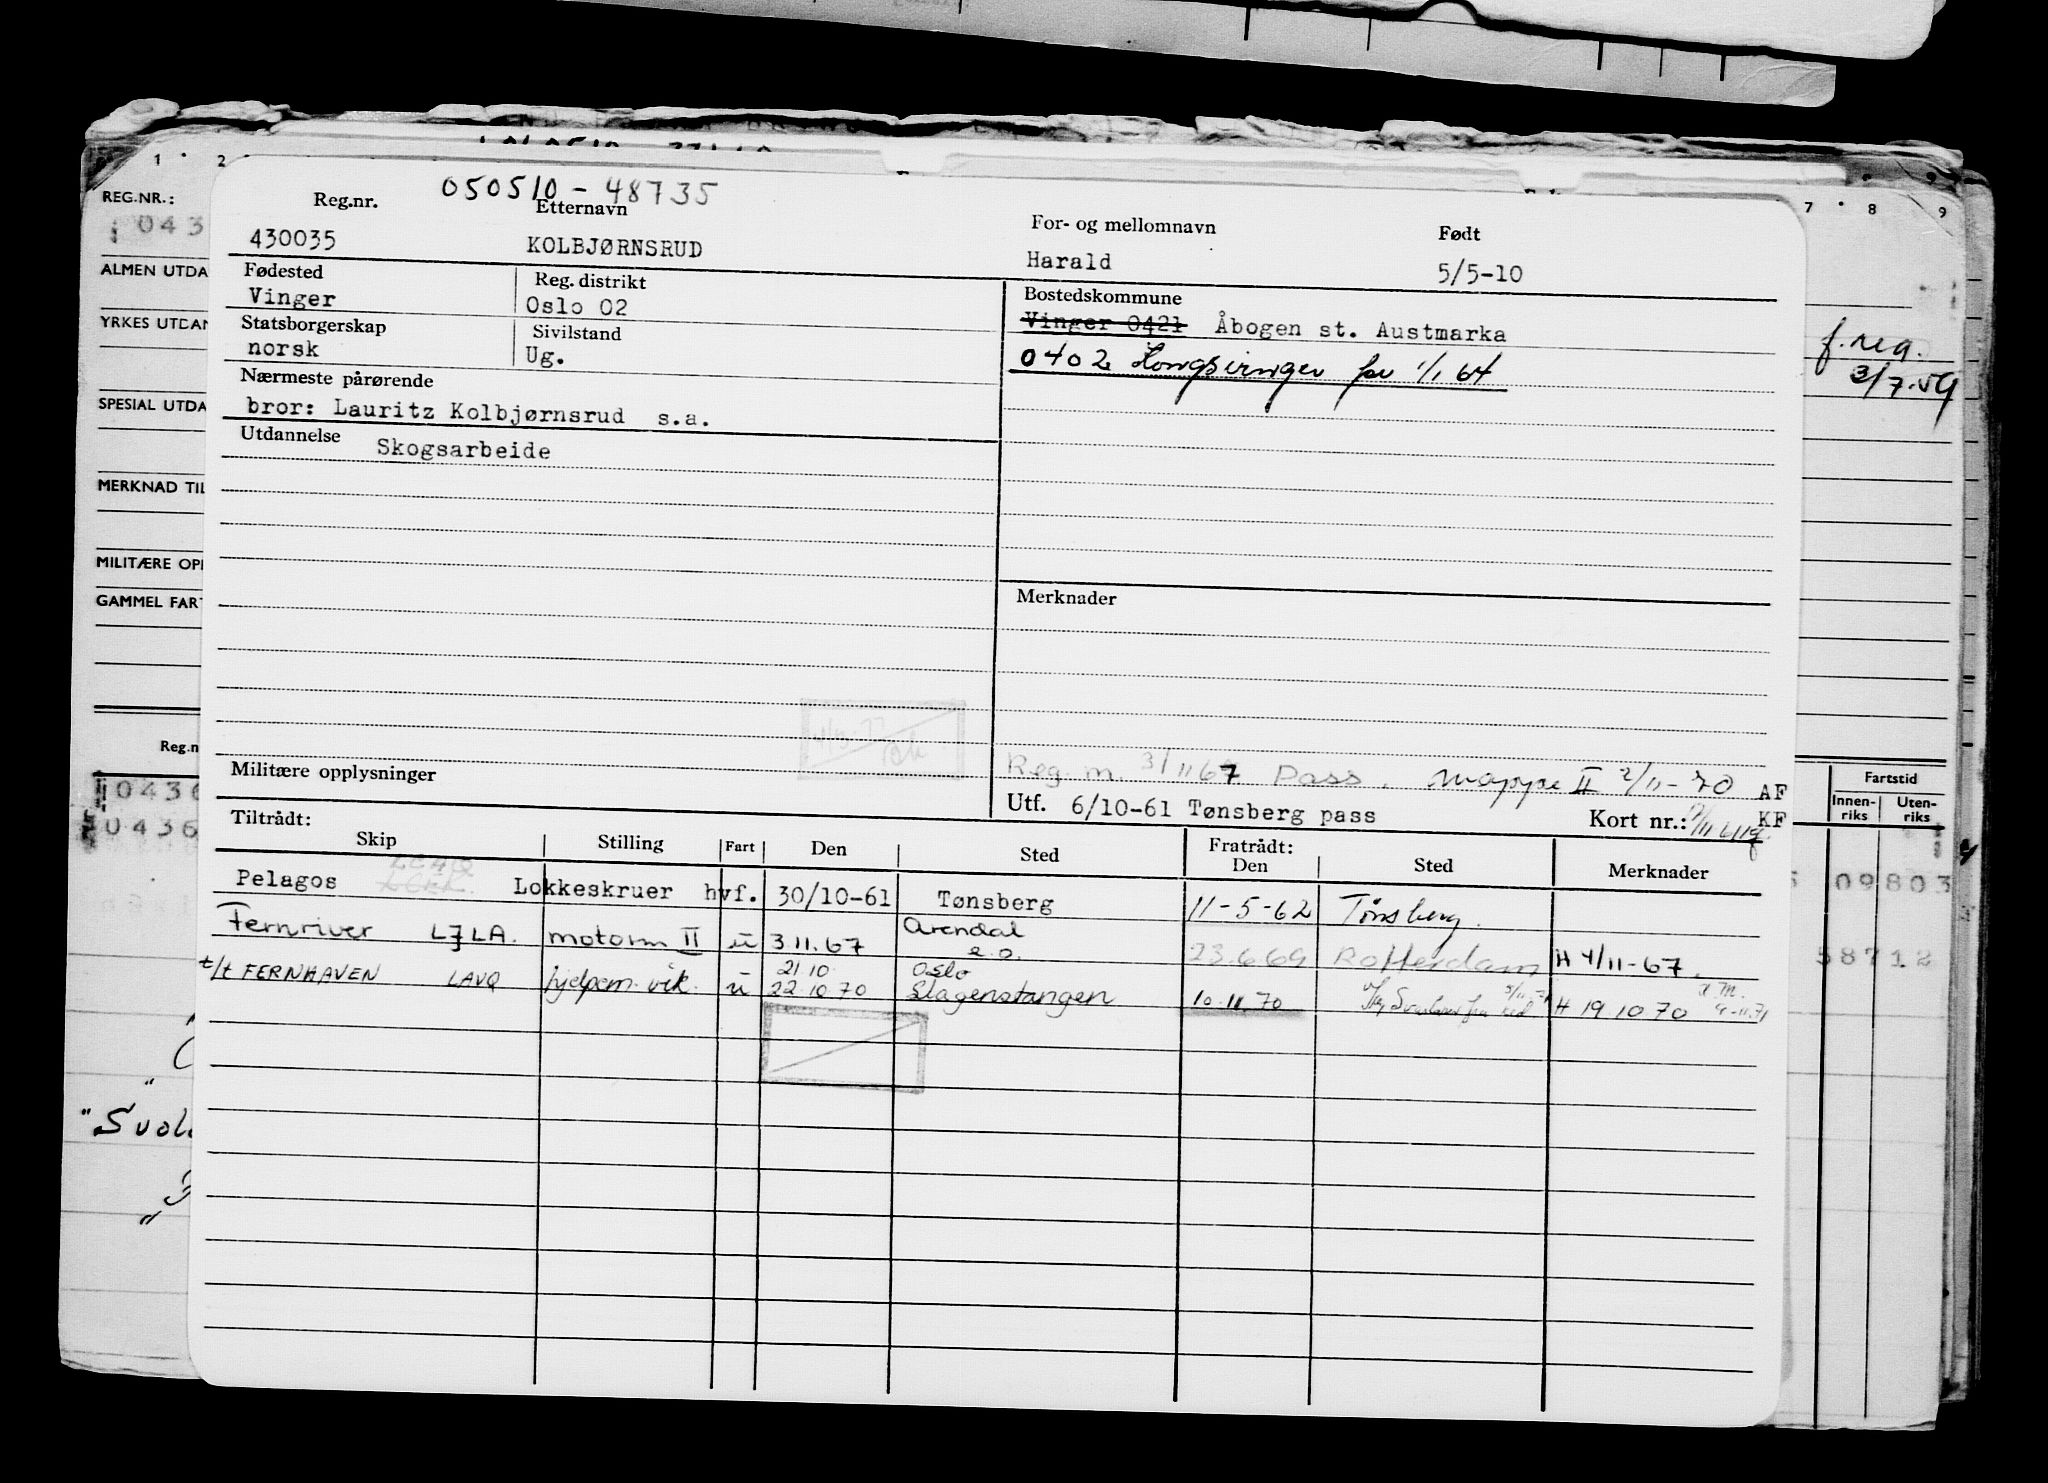 1 2 7 8 9
050510-48735
REG.NR.:
043
Reg.nr. Etternavn For- og mellomnavn Født
430035 KOLBJØRNSRUD Harald 5/5-10
ALMEN UTDA
Fødested Reg. distrikt Bostedskommune
Vinger Oslo 02 Vinger 0421 Åbogen st. Austmarka
YRKES UTDAN
Statsborgerskap Sivilstand
norsk Ug. 0402 Kongsvinger pr 1/1 64
f. reg.
3/7.59
Nærmeste pårørende
SPESIAL UTDA
bror: Lauritz Kolbjørnsrud s.a.
Utdannelse Skogsarbeide
MERKNAD TIL
MILITÆRE OPP
GAMMEL FART
Merknader
Reg.n
Militære opplysninger
Reg. m. 3/11 67 Pass. Mappe II 2/11-70 AF
Utf. 6/10-61 Tønsberg pass Kort nr.: KF
Fartstid
Innen-riks Uten-riks
0436
0436
Tiltrådt: Fratrådt:
Skip Stilling Fart Den Sted Den Sted Merknader
Pelagos Lokkeskruer hvf. 30/10-61 Tønsberg 11-5-62 Tønsberg.
09803
Fernriver LJLA. motorm II u 3.11.67 Arendal e.o. 23.6.69 Rotterdam H 4/11-67.
58712
t/t FERNHAVEN LAVQ hjelpem. vik. u 21.10 22.10.70 Oslo Slagenstangen 10.11.70 H 19.10.70
"Svol